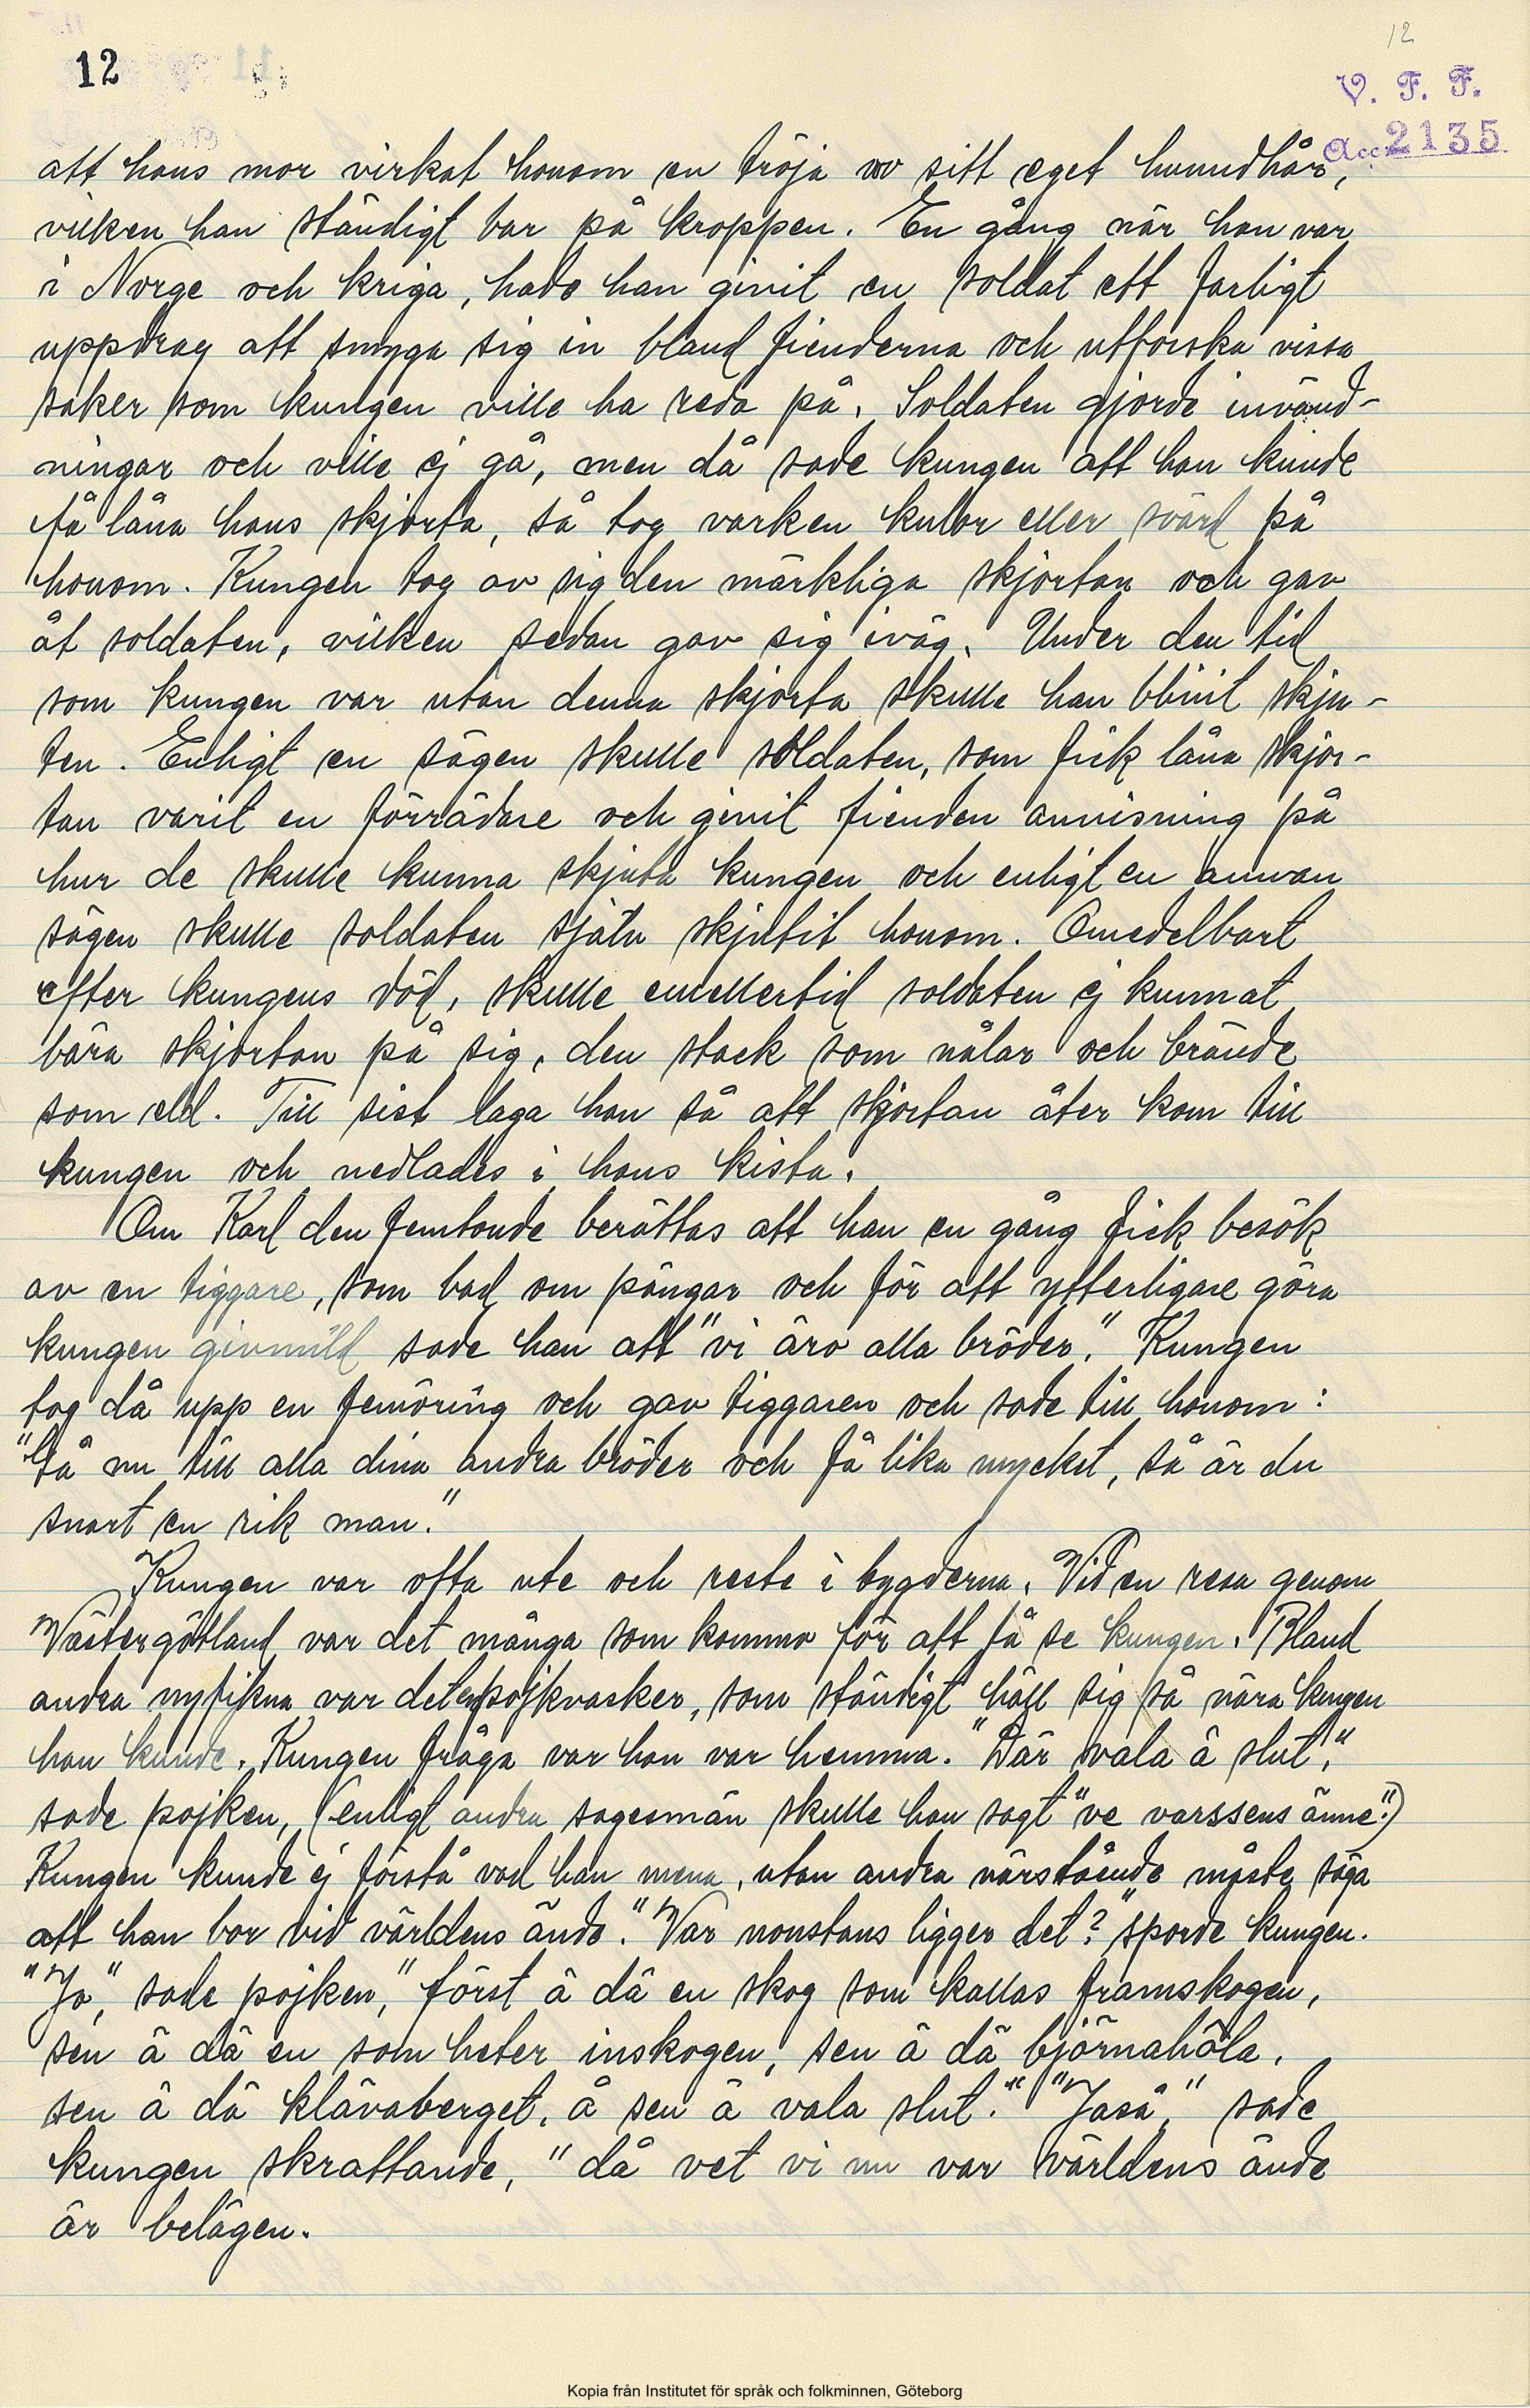 12
12
V. F. F.
Acc 2135
att hans mor virkat honom en tröja av sitt eget huvudhår,
vilken han ständigt bar på kroppen. En gång när han var
i Norge och kriga, hade han givit en soldat ett farligt
uppdrag att smyga sig in bland fienderna och utforska vissa
saker som kungen ville ha reda på. Soldaten gjorde invänd-
ningar och ville ej gå, men då sade kungen att han kunde
få låna hans skjorta, så tog varken kulor eller svärd på
honom. Kungen tog av sig den märkliga skjortan och gav
åt soldaten, vilken sedan gav sig iväg. Under den tid
som kungen var utan denna skjorta skulle han blivit skju-
ten. Enligt en sägen skulle soldaten, som fick låna skjor-
tan varit en förrädare och givit fienden anvisning på
hur de skulle kunna skjuta kungen och enligt en annan
sägen skulle soldaten själv skjutit honom. Omedelbart
efter kungens död, skulle emellertid soldaten ej kunnat
bära skjortan på sig, den stack som nålar och brände
som eld. Till sist laga han så att skjortan åter kom till
kungen och nedlades i hans kista.
Om Karl den femtonde berättas att han en gång fick besök
av en tiggare, som bad om pängar och för att ytterligare göra
kungen givmild sade han att "vi äro alla bröder." Kungen
tog då upp en femöring och gav tiggaren och sade till honom:
"Gå nu till alla dina andra bröder och få lika mycket, så är du
snart en rik man."
Kungen var ofta ute och reste i bygderna. Vid en resa genom
Västergötland var det många som kommo för att få se kungen. Bland
andra nyfikna var det en pojkvasker, som ständigt höll sig så nära kungen
han kunde. Kungen fråga var han var hemma. "Där vala ä slut",
sade pojken, (enligt andra sagesmän skulle han sagt "ve varssens änne".)
Kungen kunde ej förstå vad han mena, utan andra närstående måste säga
att han bor vid världens ände. "Var nonstans ligger det?" sporde kungen.
"Jo," sade pojken, "först ä dä en skog som kallas framskogen,
sen ä dä en som heter inskogen, sen ä dä björnahôla,
sen ä dä klävaberget, å sen ä vala slut." "Jaså," sade
kungen skrattande, "då vet vi nu var världens ände
är belägen.
Kopia från Institutet för språk och folkminnen, Göteborg